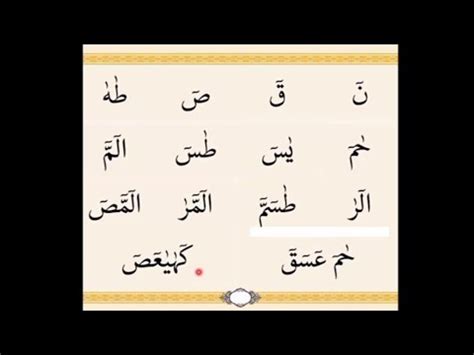 نٓ قٓ صٓ طٰهٰ
حٰمٓ يٰسٓ طٰسٓ الٓمّٓ
الٓرٰ طٰسٓمّٓ الٓمّٓرٰ الٓمّٓصٓ
حٰمٓ عٓسٓقٓ كٓهٰيٰعٓصٓ